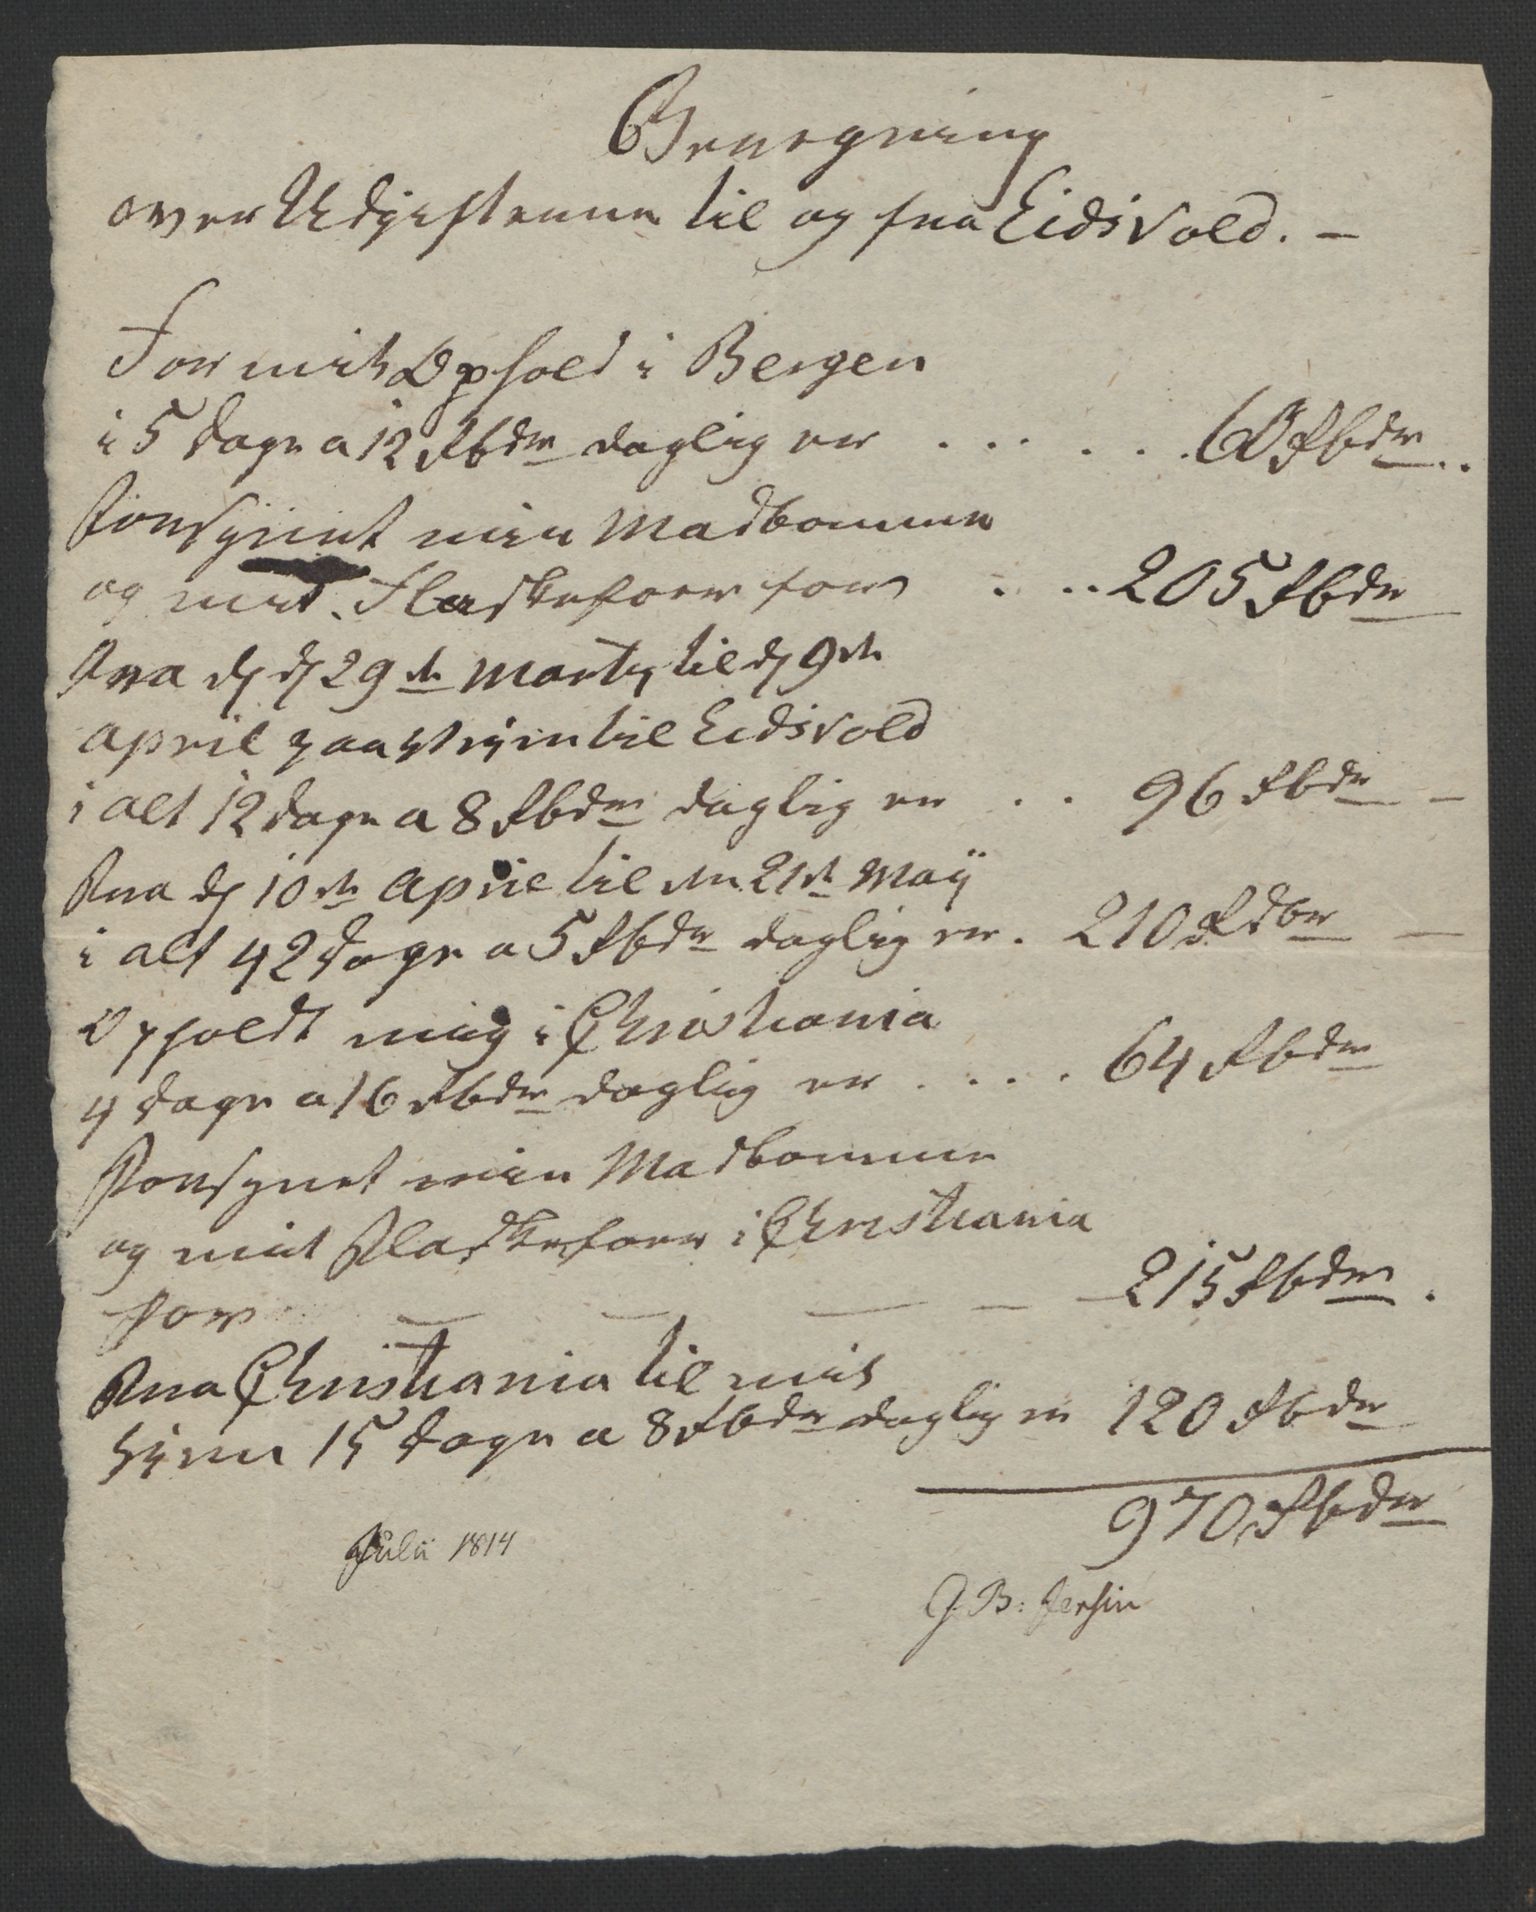 Beregning
over Udgifterne til og fra Eidsvold. –
For mit Ophold i Bergen
i 5 Dage a 12 Rbdr daglig er . . . . . . 60 Rbdr ..
Forsynet min Madbomme
og mit Flaskefoer for . . . 205 Rbdr
Fra d. 29de Marty til d. 9de
April paa Reisen til Eidsvold
i alt 12 Dage a 8 Rbdr daglig er . . 96 Rbdr –
Fra d. 10de April til den 21de Maÿ
i alt 42 Dage a 5 Rbdr daglig er . 210 Rdbr –
Opholdt mig i Christiania
4 Dage a 16 Rbdr daglig er . . . . 64 Rbdr
Forsynet min Madbomme
og mit Flaskefoer i Christiania
for – – – – – 215 Rbdr .
Fra Christiania til mit
Hiem 15 Dage a 8 Rbdr daglig er 120 Rbdr
970 Rbdr
Juli 1814
G. B: Jersin